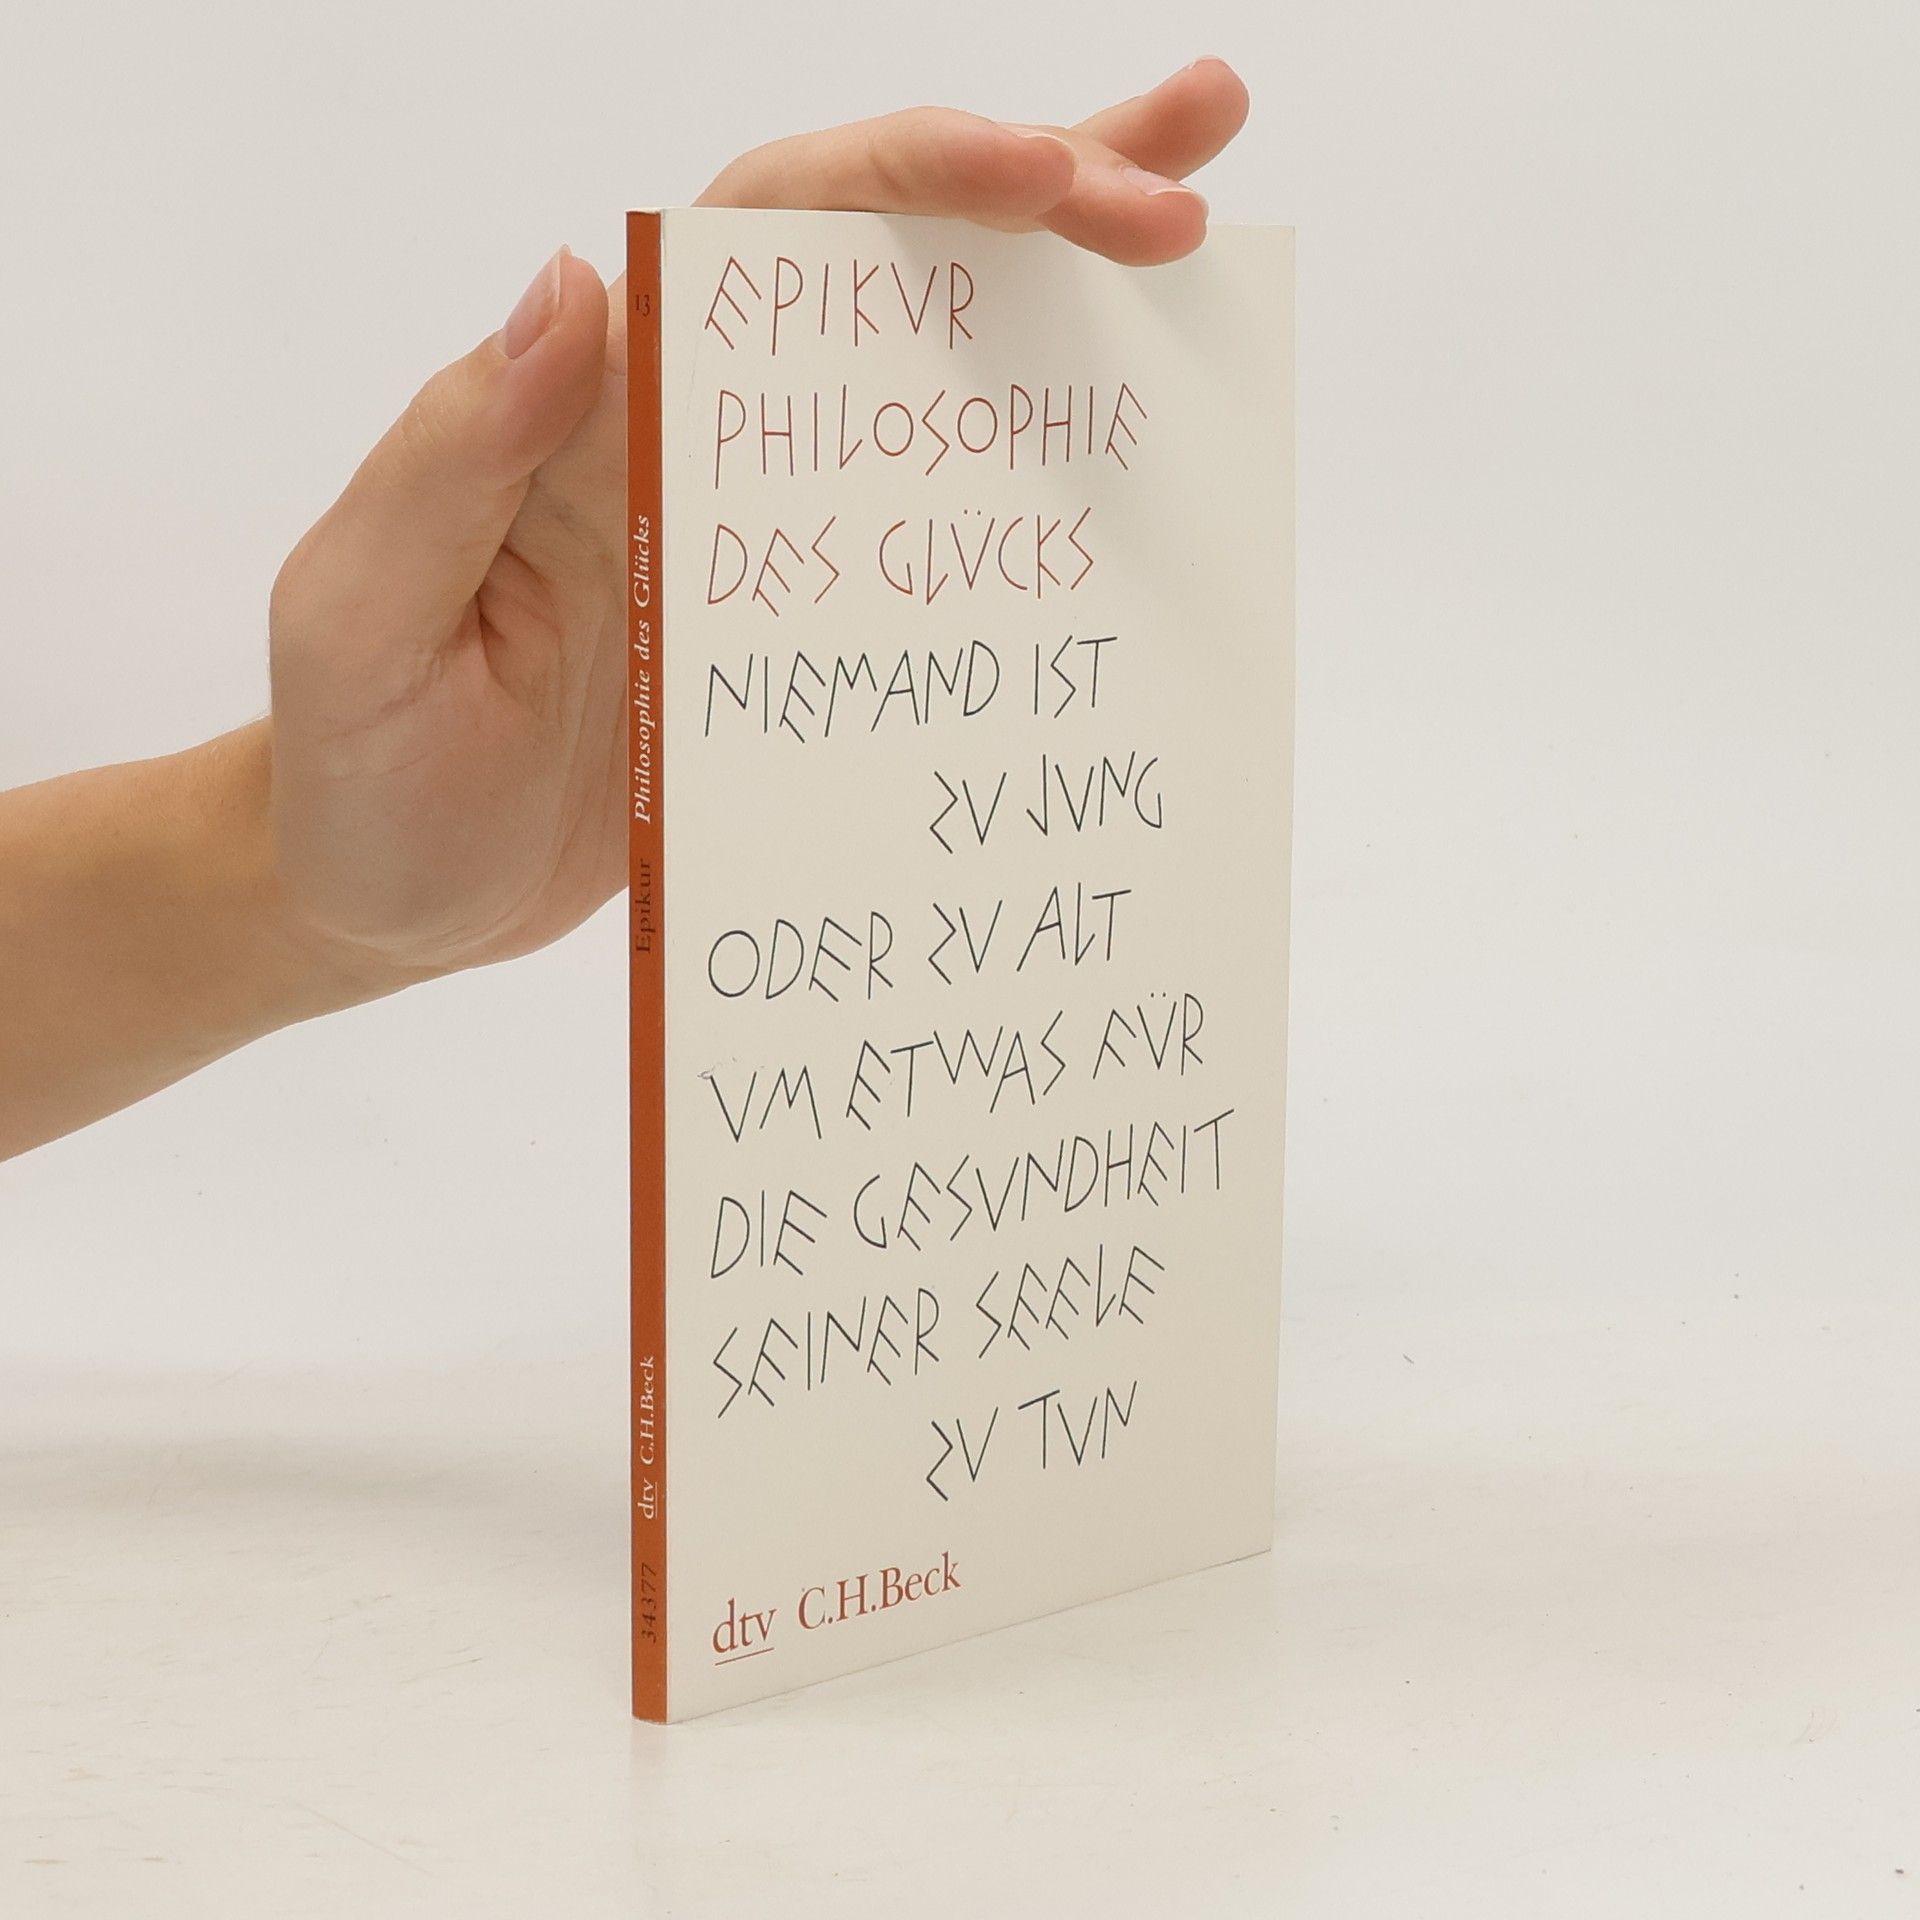 13
Epikur Philosophie des Glücks
dtv C.H.Beck
34377
EPIKVR
PHILOSOPHIE
DES GLÜCKS
NIEMAND IST
ZV JVNG
ODER ZV ALT
VM ETWAS FÜR
DIE GESVNDHEIT
SEINER SEELE
ZV TVN
dtv C.H.Beck